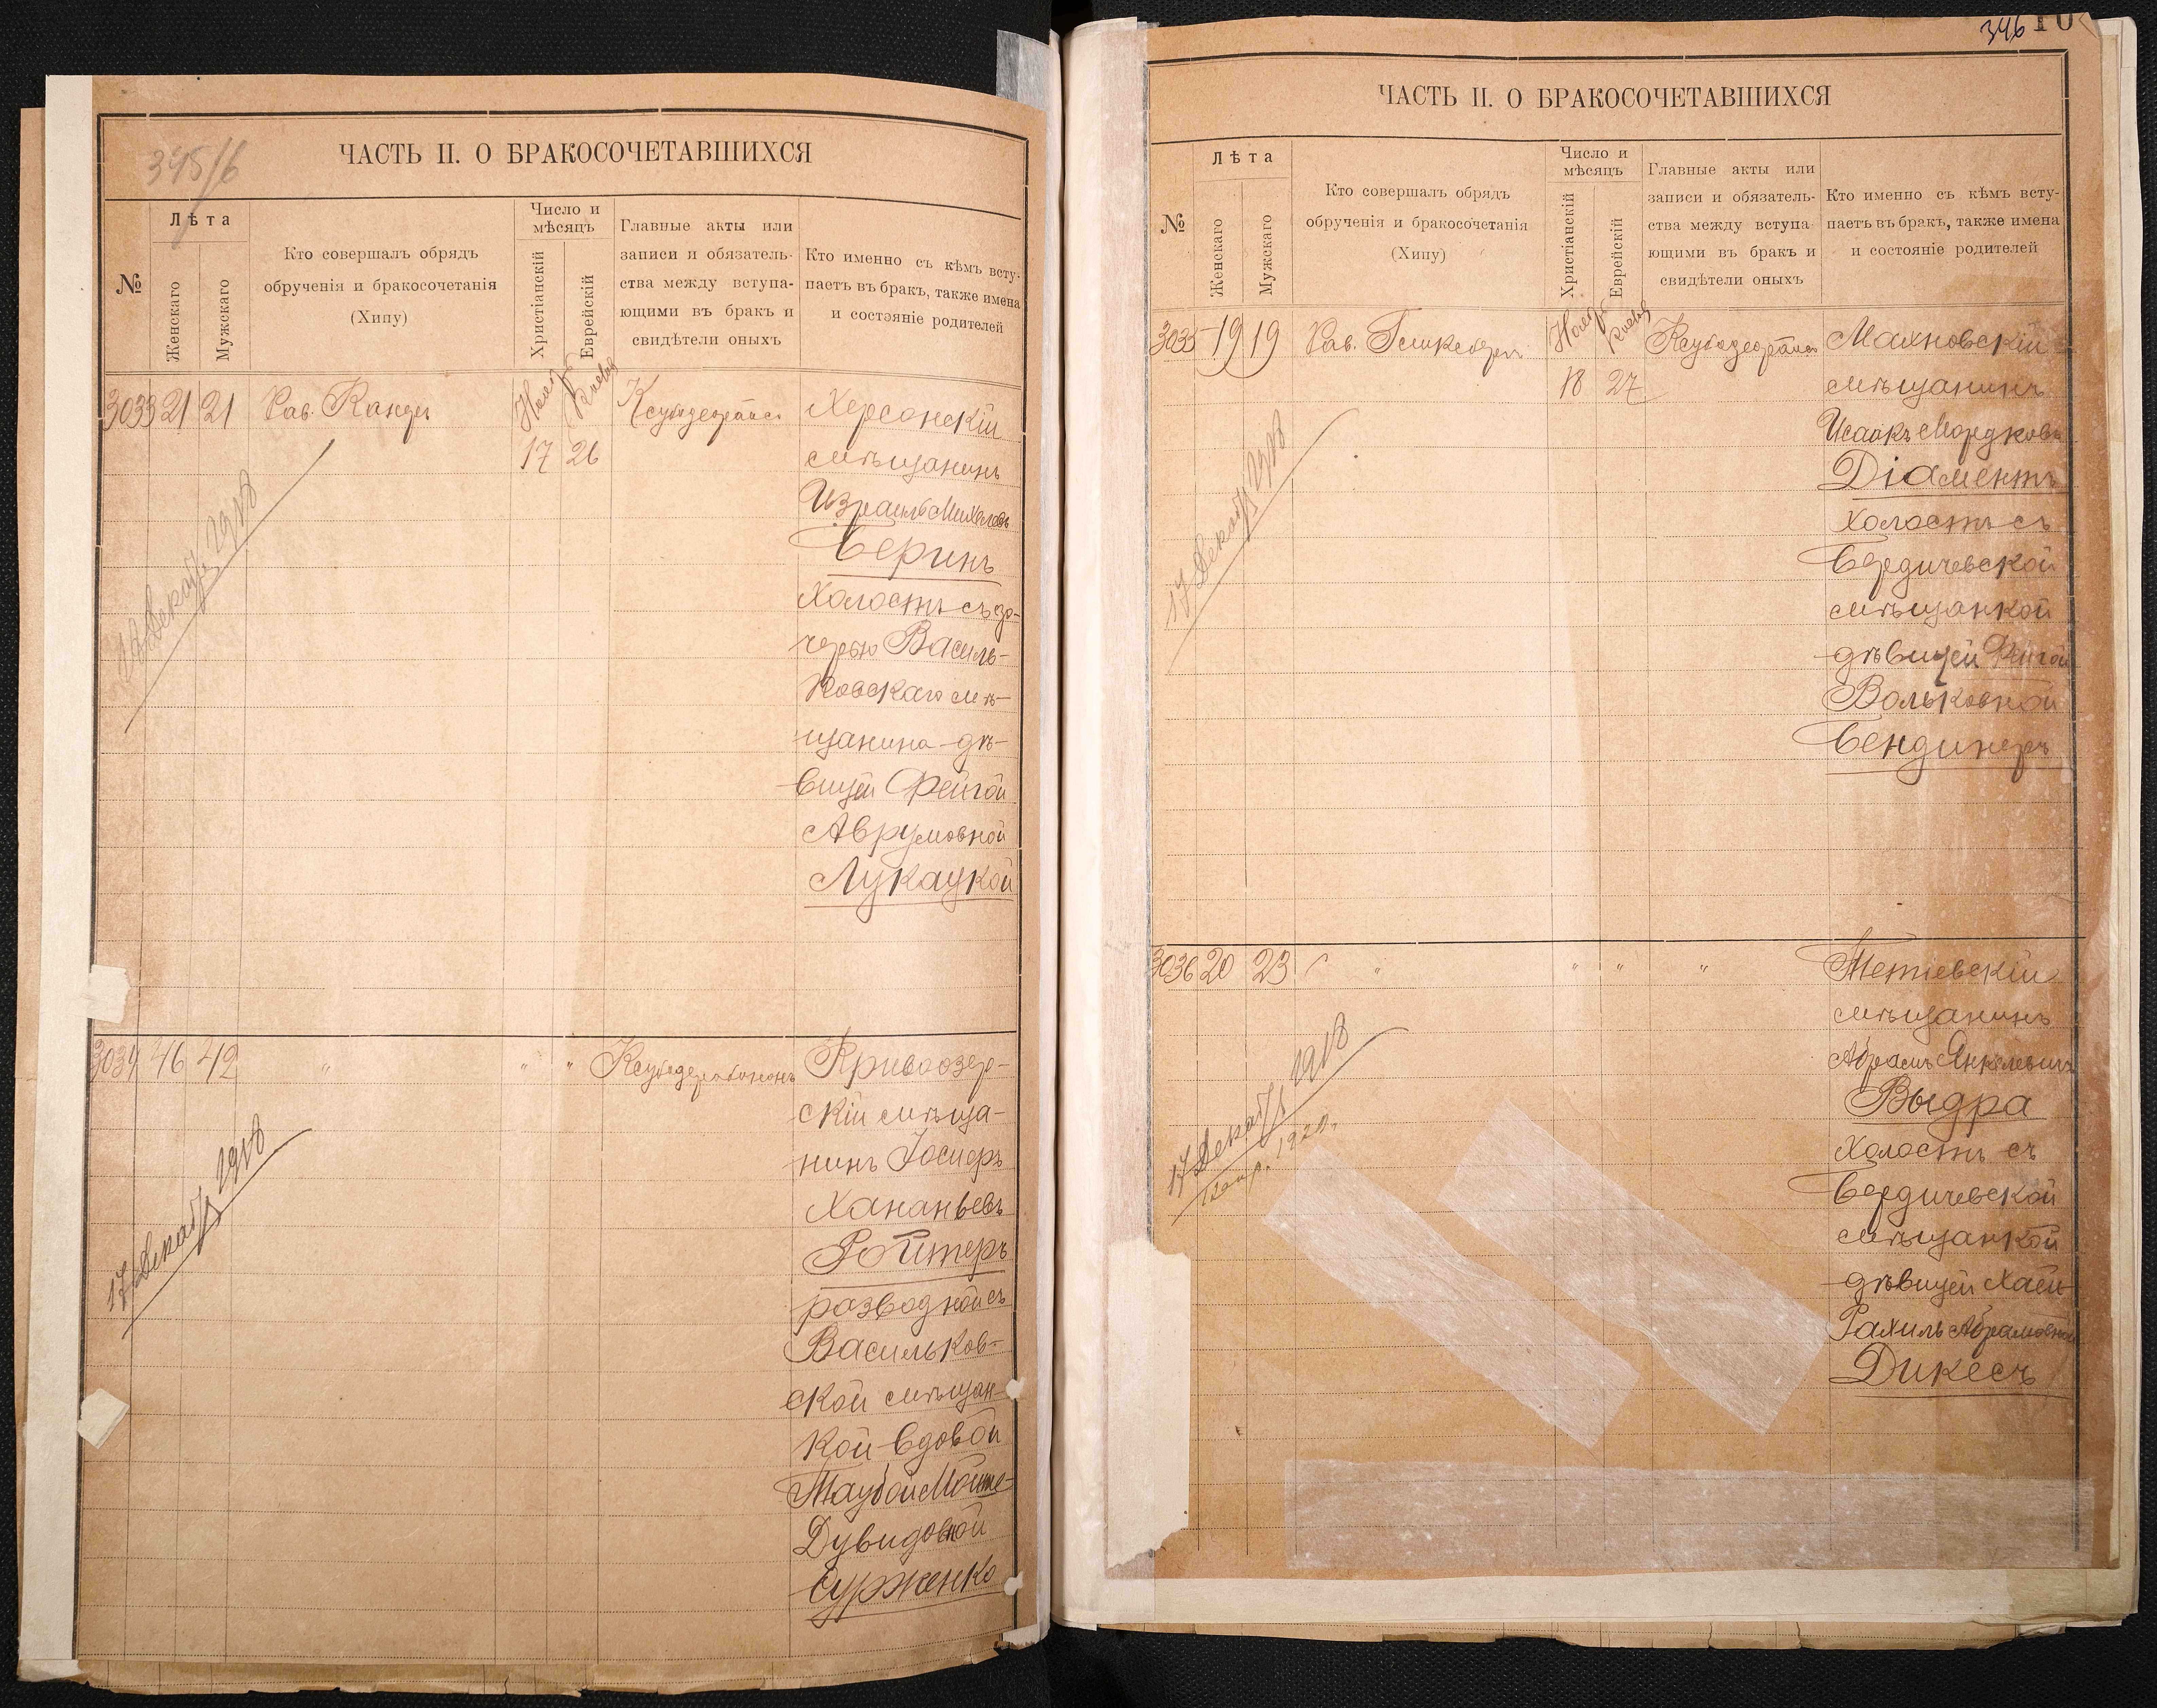 345/6
ЧАСТЬ II. О БРАКОСОЧЕТАВШИХСЯ
№
Лѣта
Женскаго
Мужскаго
Кто совершалъ обрядъ
обрученія и бракосочетанія
(Хипу)
Число и
мѣсяцъ
Христіанскій
Еврейскій
Главные акты или
записи и обязатель-
ства между вступа-
ющими въ бракъ и
свидѣтели оныхъ
Кто именно съ кѣмъ всту-
паетъ въ бракъ, также имена
и состояніе родителей
3033 21 21 Рав.
17 26
Херсонскій
мѣщанинъ
Израиль Михелевъ
Беринъ
Холостъ съ до-
черью Василь-
ковскаго мѣ-
щанина-дѣ-
вицей Фейгой
Аврумовной
Лукацкой
Декабр 1918
3034 46 42 " " "
Кривоозер-
скій мѣща-
нинъ Іосифъ
Хананьевъ
Ройтеръ
разводной съ
Васильков-
ской мѣщан-
кой-вдовой
Таубой Мойше-
Дувидовной
Сурженко
17 Декабр 1918
346
10
ЧАСТЬ II. О БРАКОСОЧЕТАВШИХСЯ
№
Лѣта
Женскаго
Мужскаго
Кто совершалъ обрядъ
обрученія и бракосочетанія
(Хипу)
Число и
мѣсяцъ
Христіанскій
Еврейскій
Главные акты или
записи и обязатель-
ства между вступа-
ющими въ бракъ и
свидѣтели оныхъ
Кто именно съ кѣмъ всту-
паетъ въ бракъ, также имена
и состояніе родителей
3035 19 19 Рав.
18 27
Махновскій
мѣщанинъ
Исаакъ Мордковъ
Діаментъ
холостъ съ
Бердичевской
мѣщанкой
дѣвицей Фейгой
Вольковной
Бендинеръ
17 Декабр 1918
3036 20 23 " " " "
Тетіевскій
мѣщанинъ
Абрамъ Янкелевичъ
Выдра
Холостъ съ
Бердичевской
мѣщанкой
дѣвицей Хаей-
Рахиль Абрамовной
Дикесъ
17 Декабр 1918
1920.